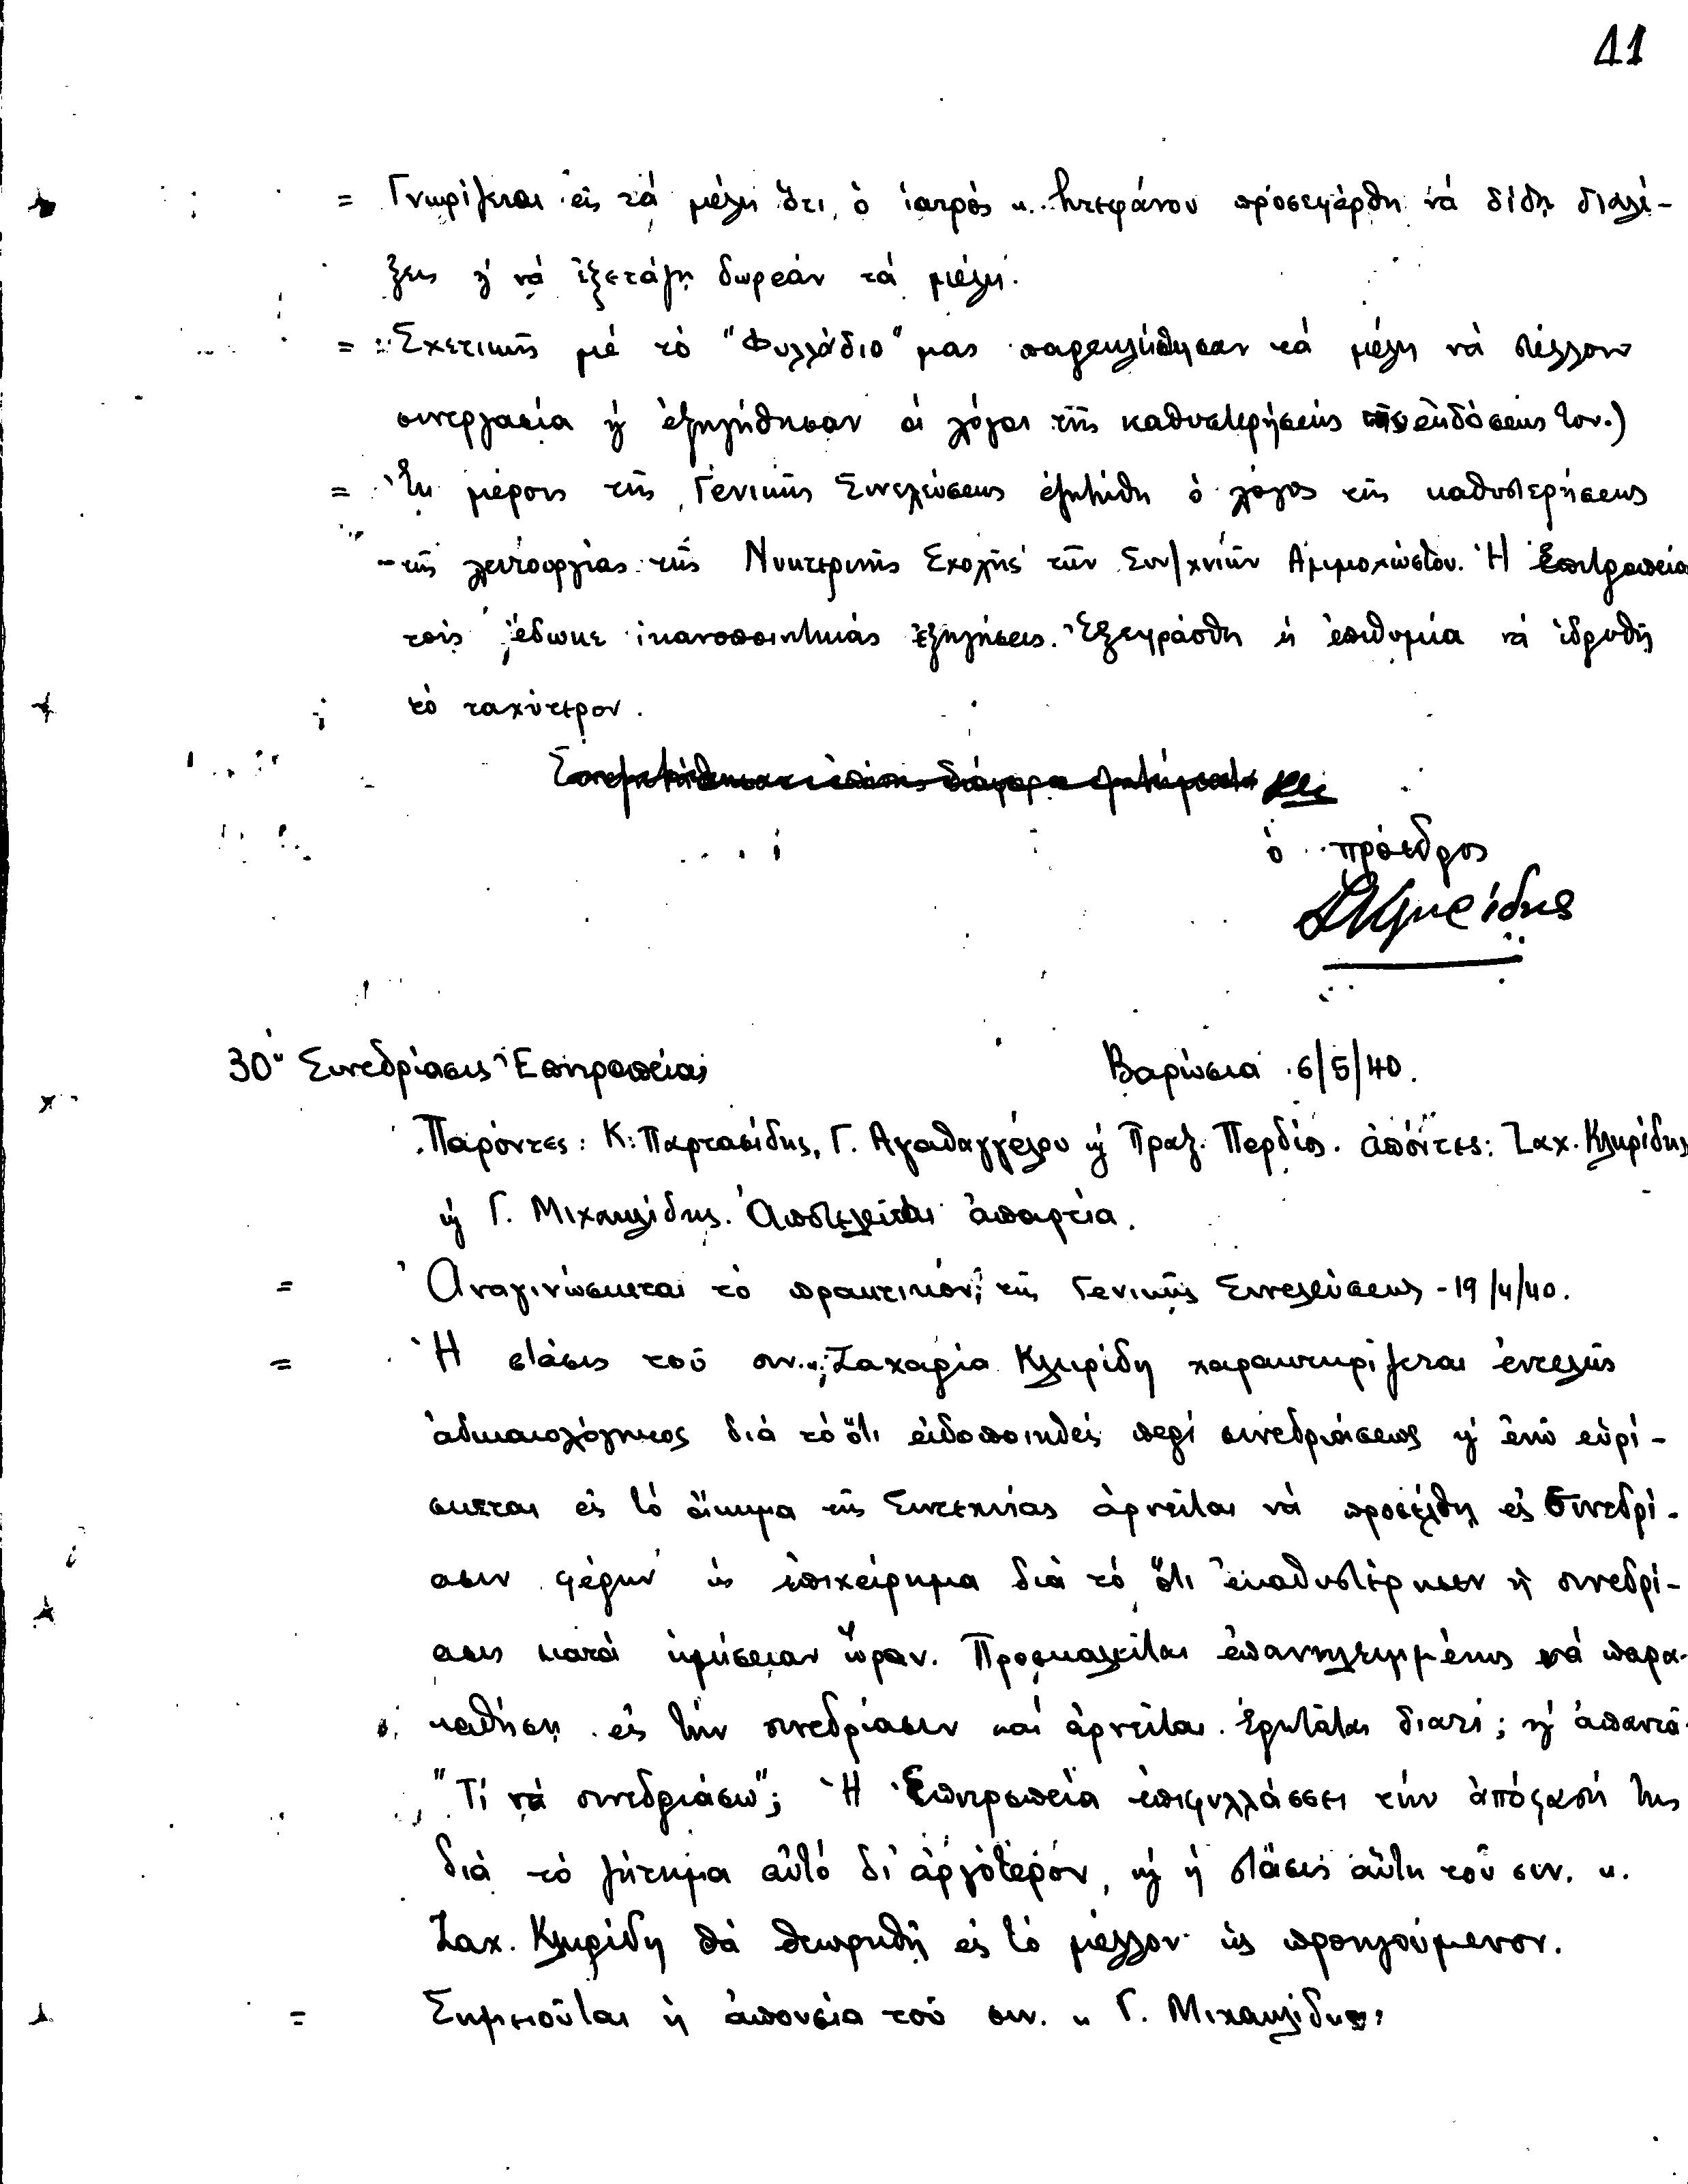 41
= Γνωρίζεται εἰς τά μέλη ὅτι ὁ ἰατρός κ. Στεφάνου προσεφέρθη νά δίδῃ διαλέ-
ξεις ϗ νά ἐξετάζῃ δωρεάν τά μέλη.
= Σχετικῶς μέ τό "Φυλλάδιο" μας παρεκλήθησαν τά μέλη νά στέλλουν
συνεργασία ϗ ἐξηγήθησαν οἱ λόγοι τῆς καθυστερήσεώς τῆς ἐκδόσεώς του.)
= Ἐκ μέρους τῆς Γενικῆς Συνελεύσεως ἐζητήθη ὁ λόγος τῆς καθυστερήσεως
τῆς λειτουργίας τῆς Νυκτερινῆς Σχολῆς τῶν Συν/χνιῶν Αμμοχώστου. Ἡ Ἐπιτροπεία
τοῖς ἔδωκε ἱκανοποιητικάς ἐξηγήσεις. Ἐξεφράσθη ἡ ἐπιθυμία νά ἱδρυθῇ
τό ταχύτερον.
Συνεζητήθησαν ἐπίσης διάφορα ζητήματα
ὁ πρόεδρος
30ή Συνεδρίασις Ἐπιτροπείας Βαρώσια 6/5/40.
Παρόντες: Κ. Παρτασίδης, Γ. Αγαθαγγέλου ϗ Πραξ. Περδίος. ἀπόντες: Ζαχ. Κληρίδης
ϗ Γ. Μιχαηλίδης. Ἀποτελεῖται ἀπαρτία.
= Ἀναγινώσκεται τό πρακτικόν τῆς Γενικῆς Συνελεύσεως - 19/4/40.
= Ἡ στάσις τοῦ συν. κ. Ζαχαρία Κληρίδη χαρακτηρίζεται ἐντελῶς
ἀδικαιολόγητος διά τό ὅτι εἰδοποιηθείς περί συνεδριάσεως ϗ ἐνῶ εὑρί-
σκεται εἰς τό οἴκημα τῆς Συντεχνίας ἀρνεῖται νά προσέλθῃ εἰς Συνεδρί-
ασιν φέρων ὡς ἐπιχείρημα διά τό ὅτι ἐκαθυστέρησεν ἡ συνεδρί-
ασις κατά ἡμίσειαν ὥραν. Προσκαλεῖται ἐπανηλειμμένως νά παρα-
καθήσῃ εἰς τήν συνεδρίασιν καί ἀρνεῖται. Ἐρωτᾶται διατί; ϗ ἀπαντᾶ
"Τί νά συνεδριάσω"; Ἡ Ἐπιτροπεία ἐπιφυλλάσσει τήν ἀπόφασή της
διά τό ζήτημα αὐτό δι' ἀργότερον, ϗ ἡ στάσις αὕτη τοῦ συν. κ.
Ζαχ. Κληρίδη θά θεωρηθῇ εἰς τό μέλλον ὡς προηγούμενον.
= Σημειοῦται ἡ ἀπουσία τοῦ συν. κ Γ. Μιχαηλίδη